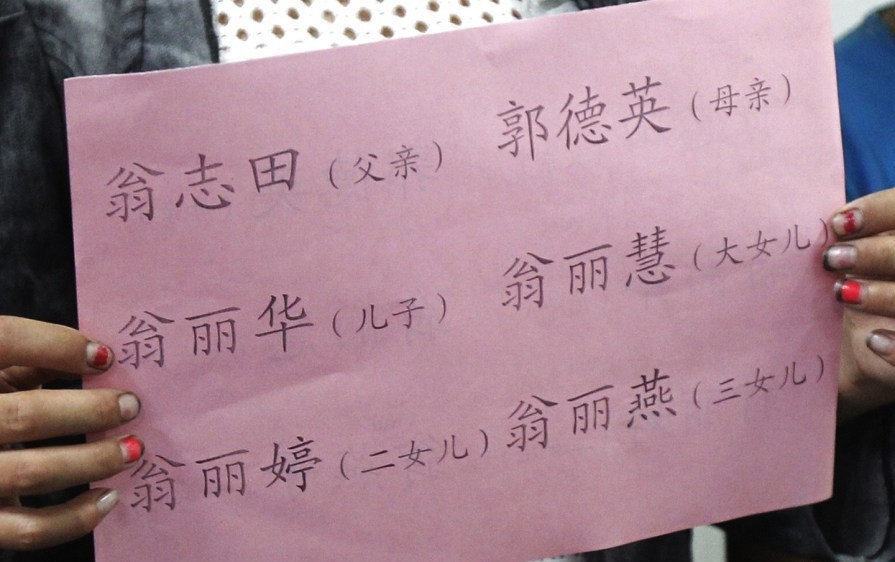 翁志田（父亲） 郭德英（母亲）
翁丽华（儿子） 翁丽慧（大女儿）
翁丽婷（二女儿） 翁丽燕（三女儿）